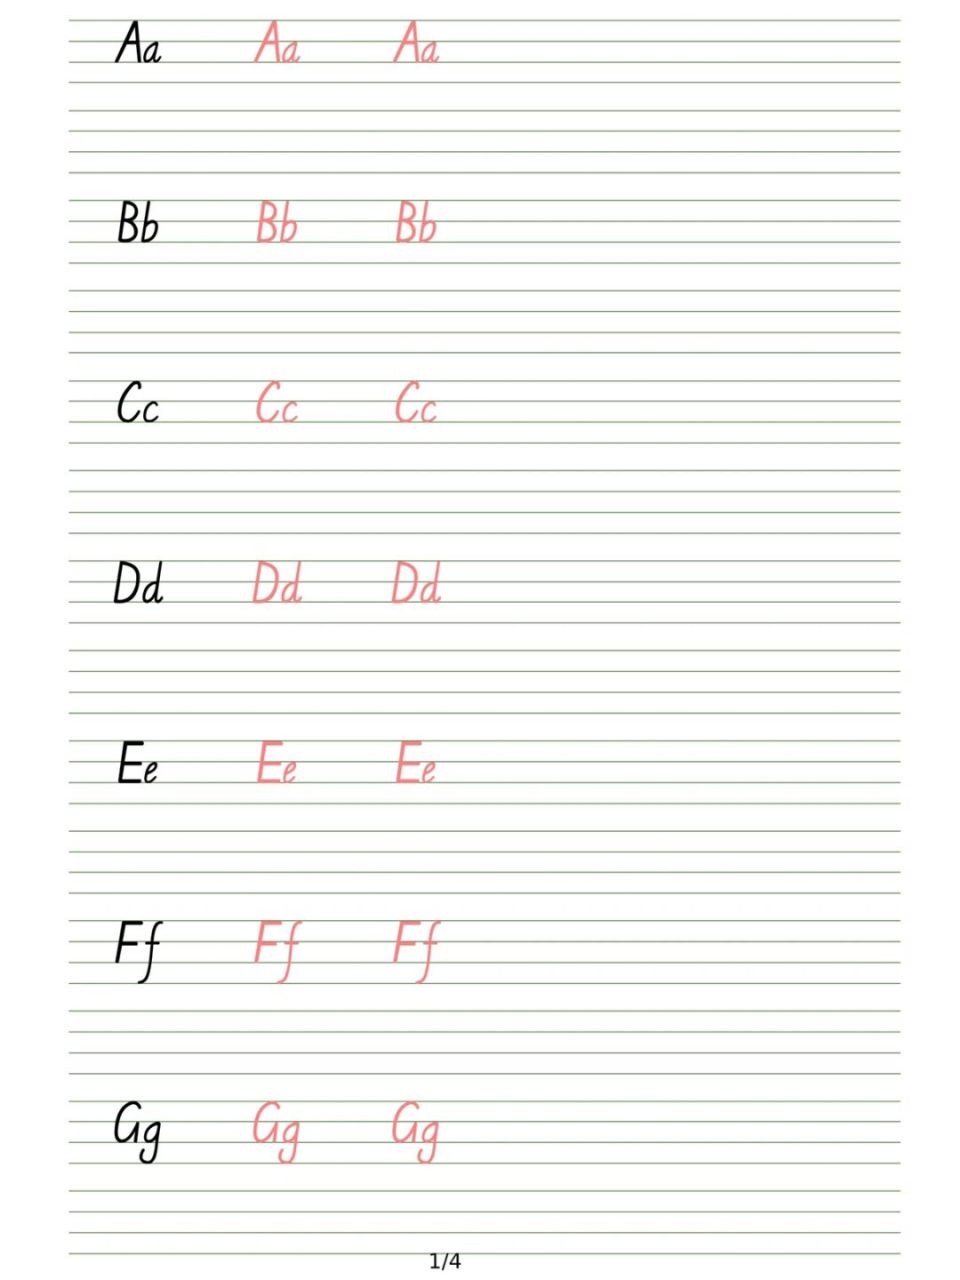 Aa Aa Aa
Bb Bb Bb
Cc Cc Cc
Dd Dd Dd
Ee Ee Ee
Ff Ff Ff
Gg Gg Gg
1/4